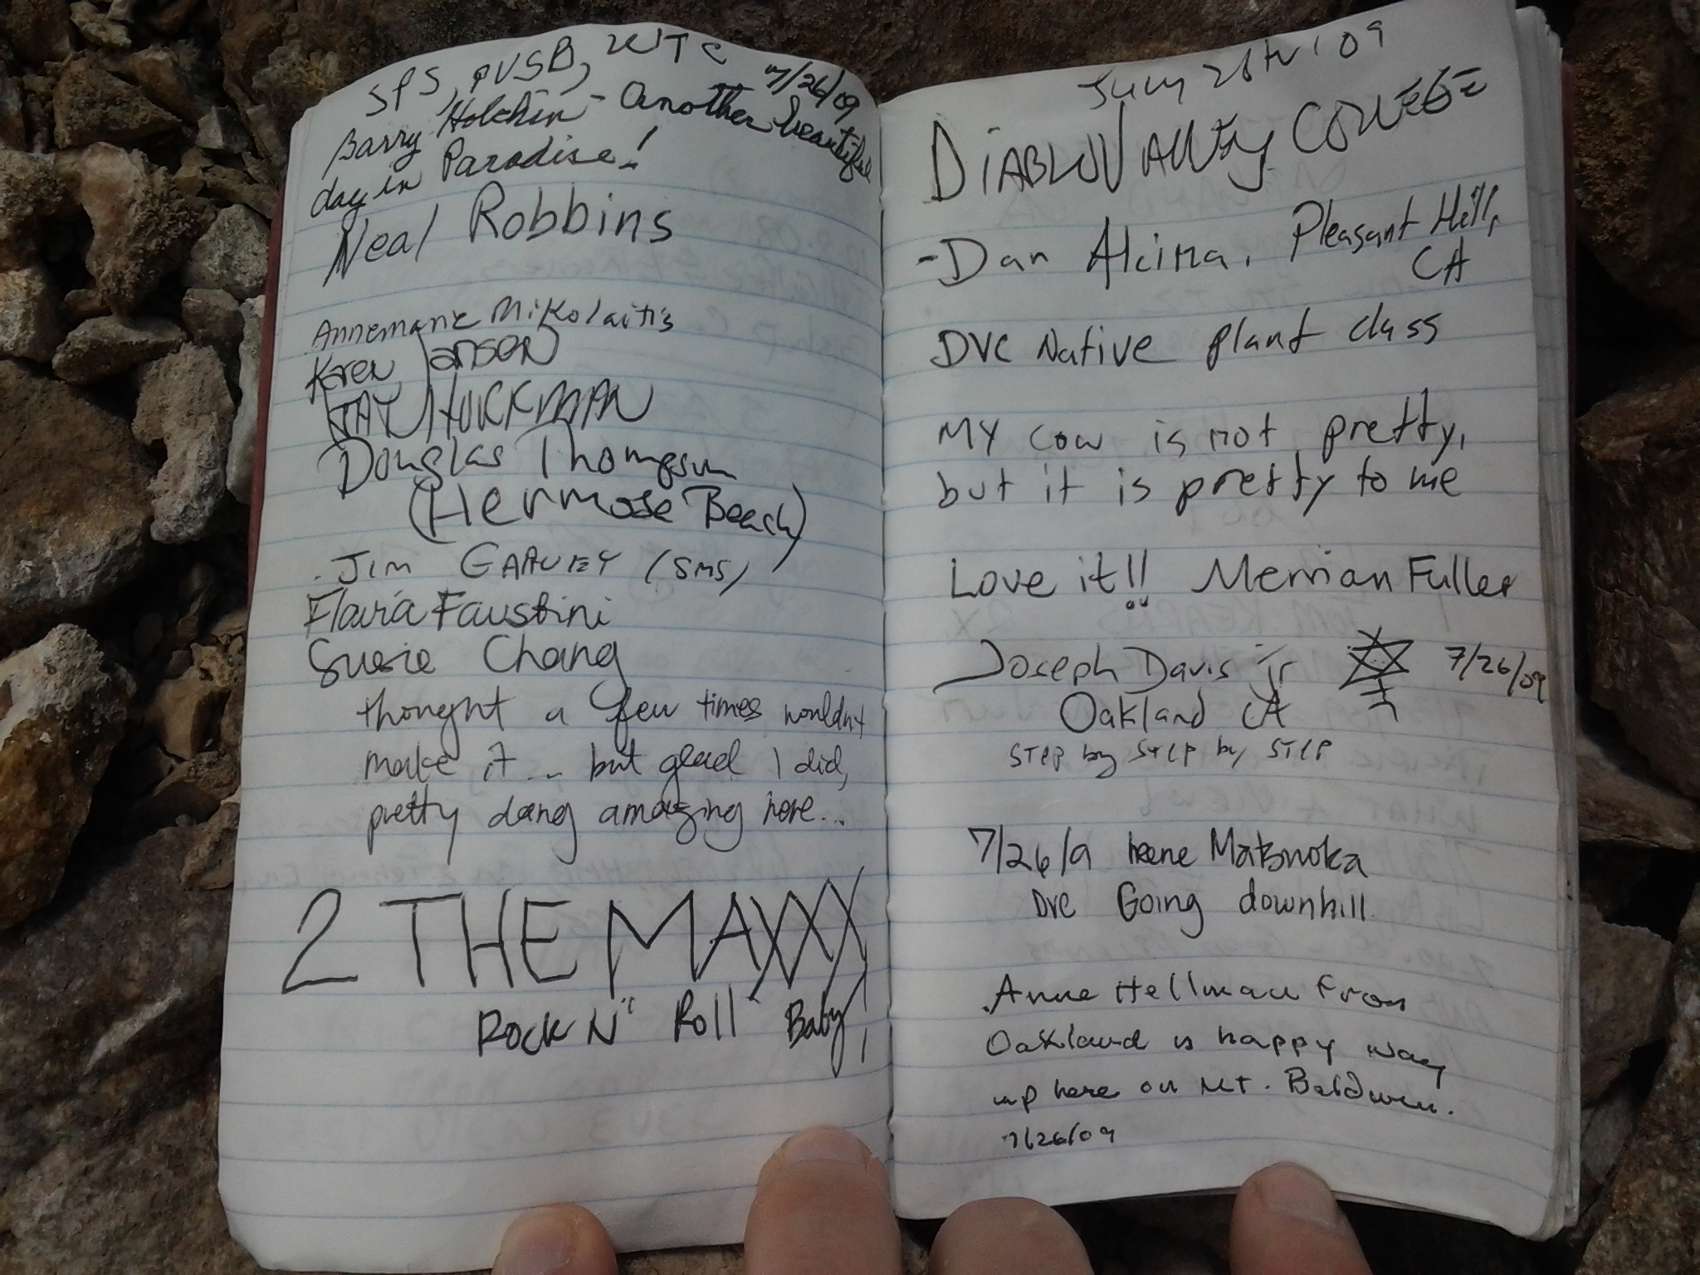 SPS, PVSB, WTC
7/26/09
Barry Holchin - Another beautiful
day in Paradise!
Neal Robbins
Annemarie Mikolaitis
Karen Jansen
JAY HUCKMAN
Douglas Thompson
(Hermosa Beach)
JIM GARVEY (SMS)
Flavia Faustini
Susie Chang
thought a few times wouldn't
make it... but glad I did,
pretty dang amazing here...
2 THE MAXXX
ROCK N" Roll Baby!
July 26th '09
DIABLO VALLEY COLLEGE
- Dan Alcima, Pleasant Hill,
CA
DVC Native plant class
MY cow is not pretty,
but it is pretty to me
Love it!! Merrian Fuller
Joseph Davis Jr 7/26/09
Oakland CA
STEP by STEP by STEP
7/26/9 Irene Matsuoka
DVC Going downhill
Anne Hellman from
Oakland is happy way
up here on Mt. Baldwin.
7/26/09